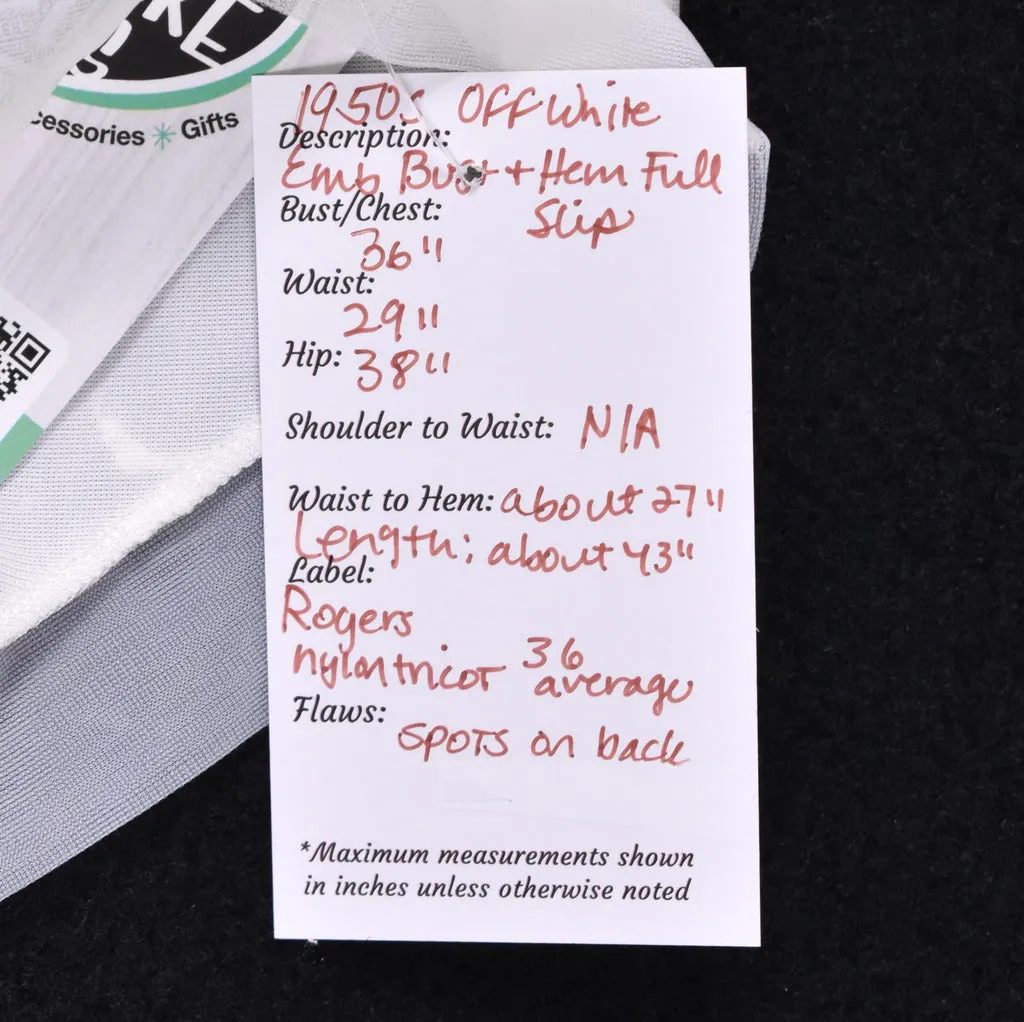 KE
cessories * Gifts
1950s Off White
Description:
Emb Bust + Hem Full
Bust/Chest:
Slip
36"
Waist:
29"
Hip: 38"
Shoulder to Waist: N/A
Waist to Hem: about 27"
Length: about 43"
Label:
Rogers
nylon tricot 36
average
Flaws:
spots on back
*Maximum measurements shown
in inches unless otherwise noted